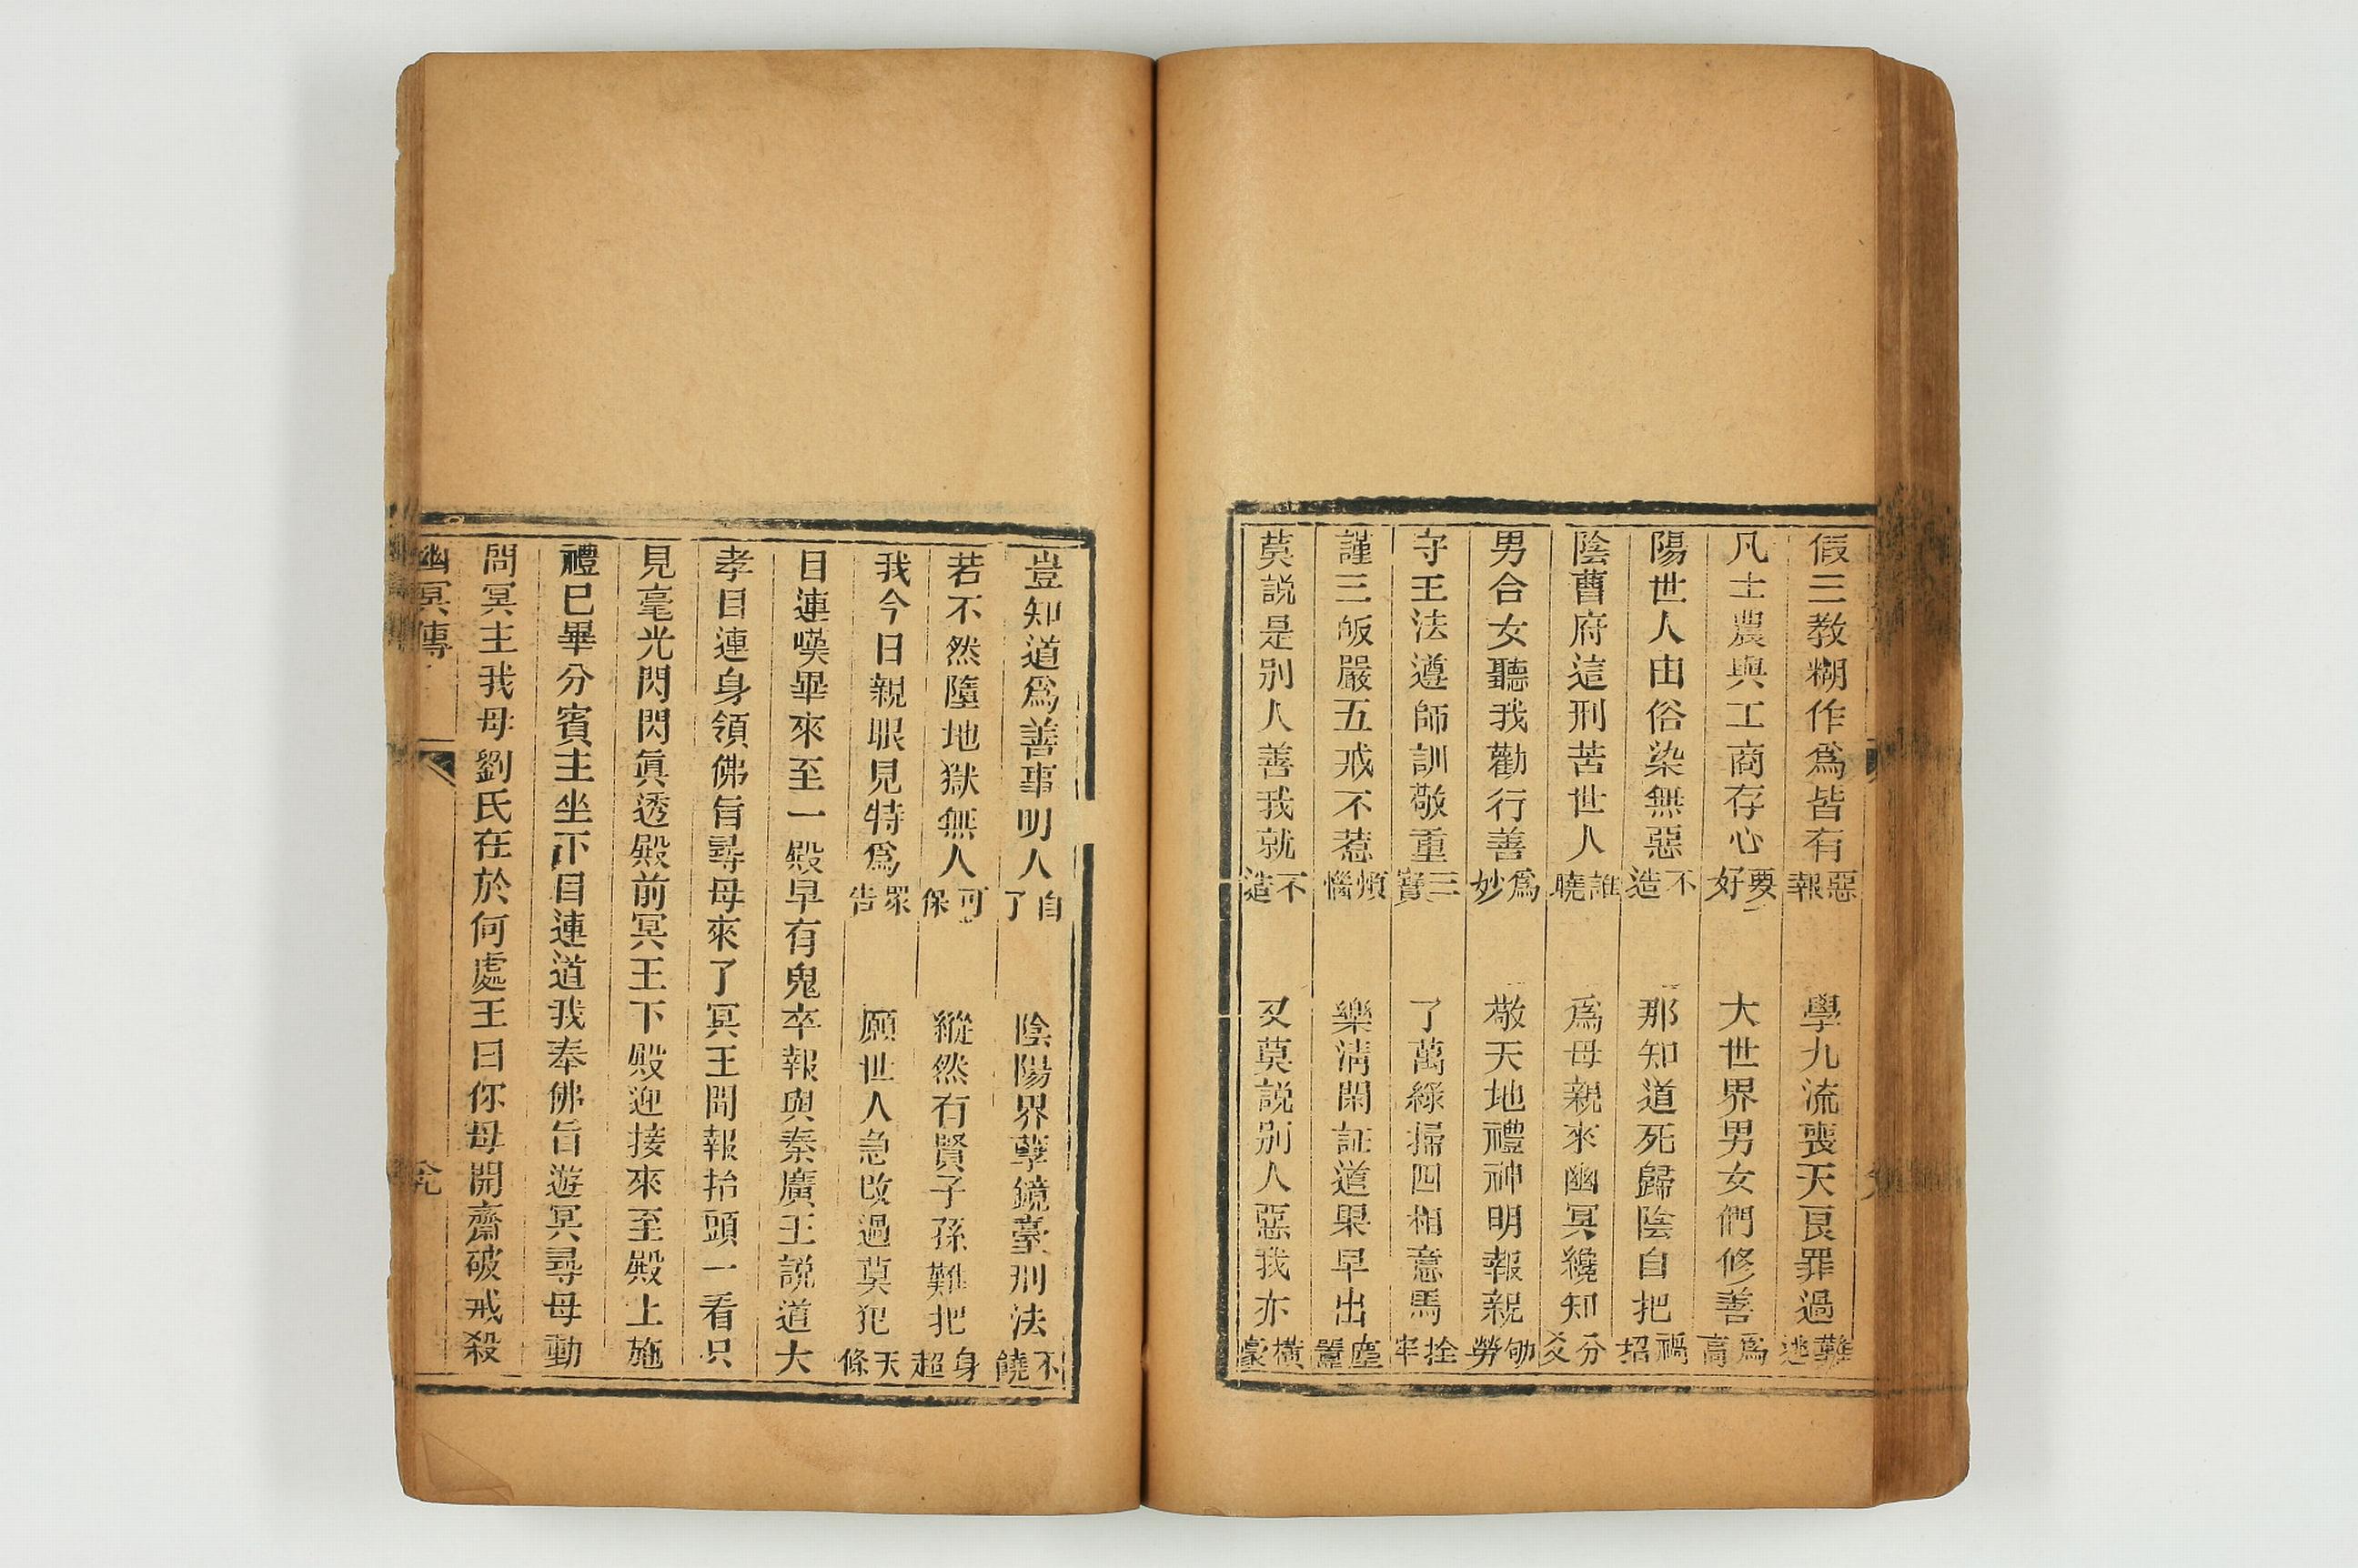 假三教糊作爲皆有惡報 學九流喪天良罪過難逃
凡士農與工商存心要好 大世界男女們修善爲高
陽世人由俗染無惡不造 那知道死歸陰自把禍招
陰曹府這刑苦世人誰曉 爲母親來幽冥纔知分爻
男合女聽我勸行善爲妙 敬天地禮神明報親劬勞
守王法遵師訓敬重三寶 了萬緣掃四相意馬拴牢
謹三皈嚴五戒不惹煩惱 樂淸閑証道果早出塵囂
莫説是別人善我就不造 又莫説別人惡我亦橫豪
豈知道爲善事明人自了 陰陽界孽鏡臺刑法不饒
若不然墮地獄無人可保 縱然有賢子孫難把身超
我今日親眼見特爲眾告 願世人急改過莫犯天條
目連嘆畢來至一殿早有鬼卒報與秦廣王説道大
孝目連身領佛旨尋母來了冥王聞報抬頭一看只
見毫光閃閃眞透殿前冥王下殿迎接來至殿上施
禮巳畢分賓主坐下目連道我奉佛旨遊冥尋母動
問冥主我母劉氏在於何處王曰你母開齋破戒殺
幽冥傳